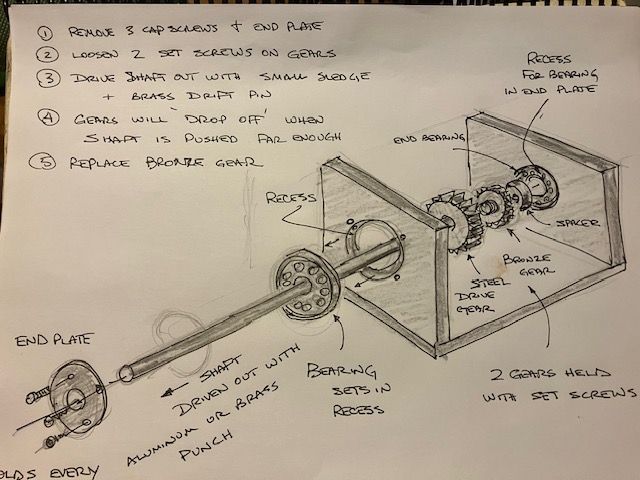 ① REMOVE 3 CAP SCREWS + END PLATE
② LOOSEN 2 SET SCREWS ON GEARS
③ DRIVE SHAFT OUT WITH SMALL SLEDGE
+ BRASS DRIFT PIN
④ GEARS WILL 'DROP OFF' WHEN
SHAFT IS PUSHED FAR ENOUGH
⑤ REPLACE BRONZE GEAR
RECESS
FOR BEARING
IN END PLATE
END BEARING
RECESS
SPACER
BRONZE
GEAR
STEEL
DRIVE
GEAR
END PLATE
SHAFT
DRIVEN OUT WITH
ALUMINUM OR BRASS
PUNCH
BEARING
SETS IN
RECESS
2 GEARS HELD
WITH SET SCREWS
OLDS EVERY